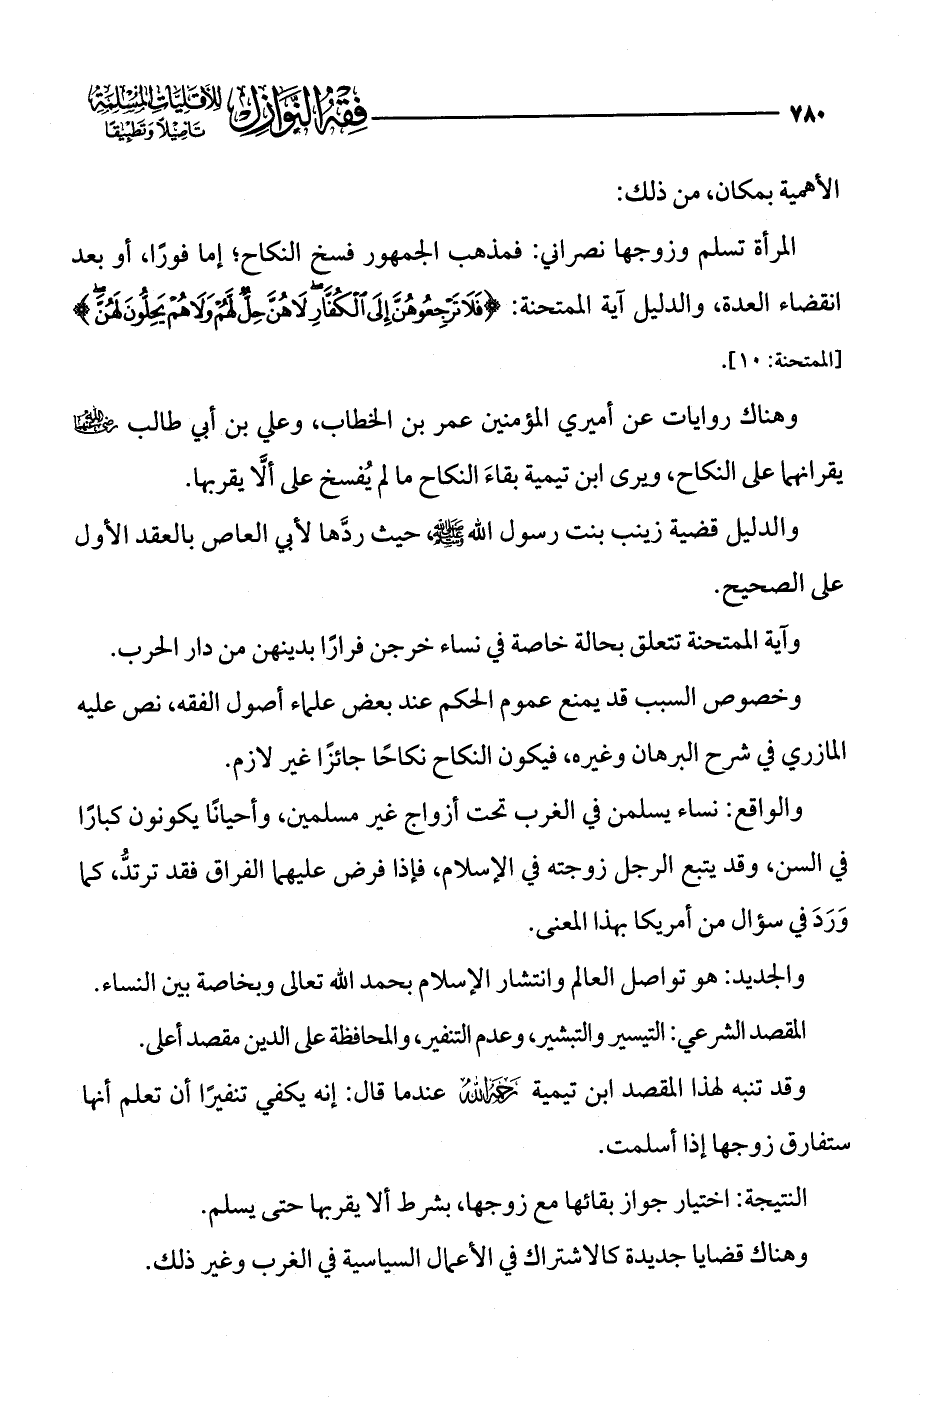 ٧٨٠ فقه النوازل للأقليات المسلمة
تأصيلًا وتطبيقًا
الأهمية بمكان، من ذلك:
المرأة تسلم وزوجها نصراني: فمذهب الجمهور فسخ النكاح؛ إما فورًا، أو بعد
انقضاء العدة، والدليل آية الممتحنة: ﴿فَلَا تَرْجِعُوهُنَّ إِلَى ٱلْكُفَّارِ ۖ لَا هُنَّ حِلٌّ لَّهُمْ وَلَا هُمْ يَحِلُّونَ لَهُنَّ ۖ﴾
[الممتحنة: ١٠].
وهناك روايات عن أميري المؤمنين عمر بن الخطاب، وعلي بن أبي طالب رضي الله عنهما
يقرانهما على النكاح، ويرى ابن تيمية بقاءَ النكاح ما لم يُفسخ على ألَّا يقربها.
والدليل قضية زينب بنت رسول الله ﷺ، حيث ردَّها لأبي العاص بالعقد الأول
على الصحيح.
وآية الممتحنة تتعلق بحالة خاصة في نساء خرجن فرارًا بدينهن من دار الحرب.
وخصوص السبب قد يمنع عموم الحكم عند بعض علماء أصول الفقه، نص عليه
المازري في شرح البرهان وغيره، فيكون النكاح نكاحًا جائزًا غير لازم.
والواقع: نساء يسلمن في الغرب تحت أزواج غير مسلمين، وأحيانًا يكونون كبارًا
في السن، وقد يتبع الرجل زوجته في الإسلام، فإذا فرض عليهما الفراق فقد ترتدُّ، كما
وَرَدَ في سؤال من أمريكا بهذا المعنى.
والجديد: هو تواصل العالم وانتشار الإسلام بحمد الله تعالى وبخاصة بين النساء.
المقصد الشرعي: التيسير والتبشير، وعدم التنفير، والمحافظة على الدين مقصد أعلى.
وقد تنبه لهذا المقصد ابن تيمية رحمه الله عندما قال: إنه يكفي تنفيرًا أن تعلم أنها
ستفارق زوجها إذا أسلمت.
النتيجة: اختيار جواز بقائها مع زوجها، بشرط ألا يقربها حتى يسلم.
وهناك قضايا جديدة كالاشتراك في الأعمال السياسية في الغرب وغير ذلك.